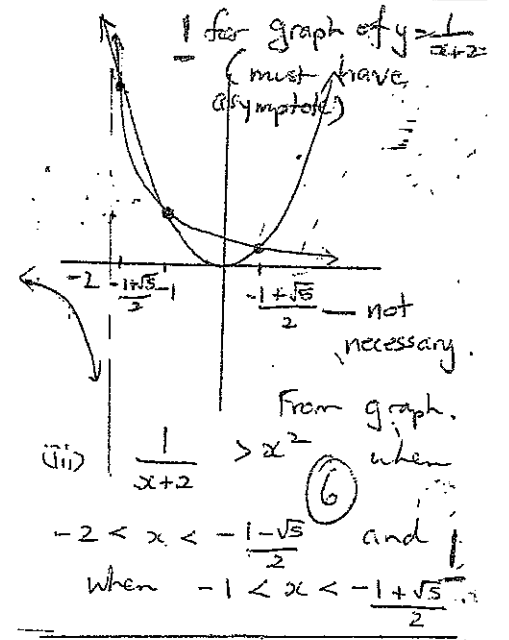 1 for graph of y = 1/(x+2)
(must have
asymptote)
-2 -1+√5/2 -1 -1+√5/2 — not
necessary.
From graph.
(iii) 1/(x+2) > x² when
6
-2 < x < -1-√5/2 and 1
when -1 < x < -1+√5/2